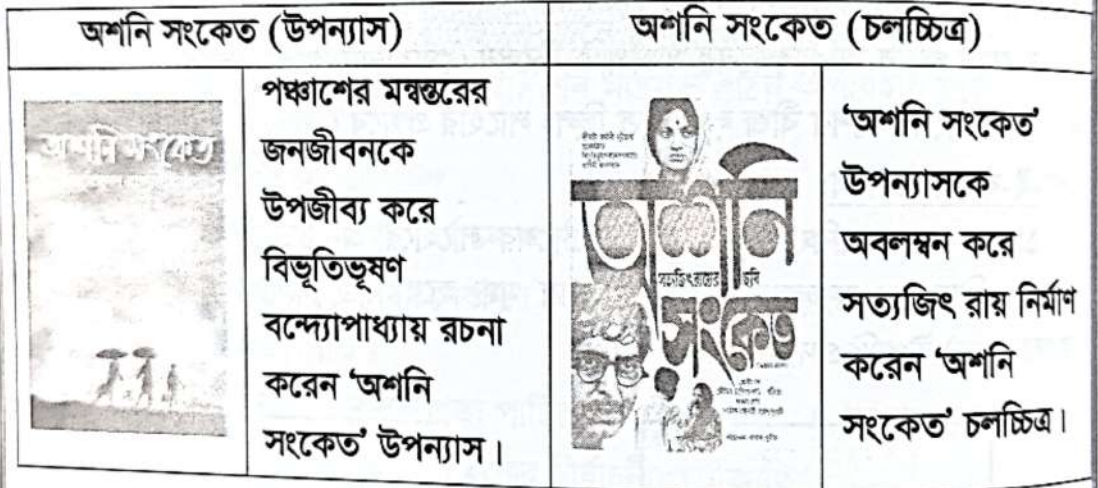 অশনি সংকেত (উপন্যাস)
অশনি সংকেত (চলচ্চিত্র)
অশনি সংকেত
পঞ্চাশের মন্বন্তরের
জনজীবনকে
উপজীব্য করে
বিভূতিভূষণ
বন্দ্যোপাধ্যায় রচনা
করেন ‘অশনি
সংকেত’ উপন্যাস।
অশনি
সত্যজিৎ রায়ের ছবি
সংকেত
‘অশনি সংকেত’
উপন্যাসকে
অবলম্বন করে
সত্যজিৎ রায় নির্মাণ
করেন ‘অশনি
সংকেত’ চলচ্চিত্র।